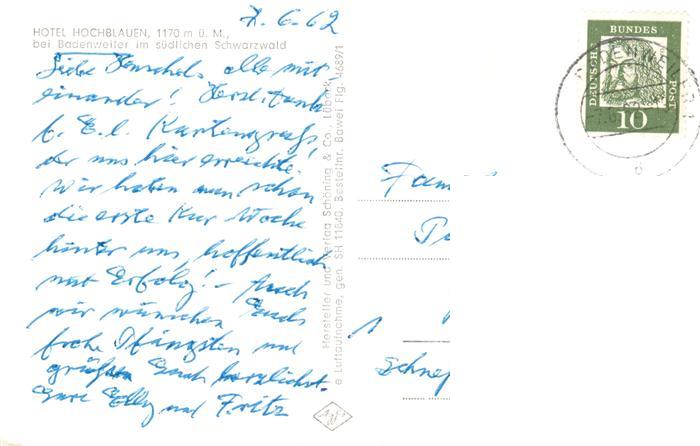 7.6.62
HOTEL HOCHBLAUEN, 1170 m ü. M.,
bei Badenweiler im südlichen Schwarzwald
Liebe Henschels, alle mit
einander! Herzl. Dank
f. E. l. Kartengruß,
der uns hier erreichte.
Wir haben nun schon
die erste Kur Woche
hinter uns, hoffentlich
mit Erfolg! – Auch
wir wünschen Euch
frohe Pfingsten und
grüßen Euch herzlichst
Eure Elly und Fritz
Hersteller und Verlag Schöning & Co., Lübeck
e Luftaufnahme, gen. SH 11840, Bestellnr. Bawei Fig. 4689/1
DEUTSCHE
BUNDES
POST
10
Fam
1
Schne